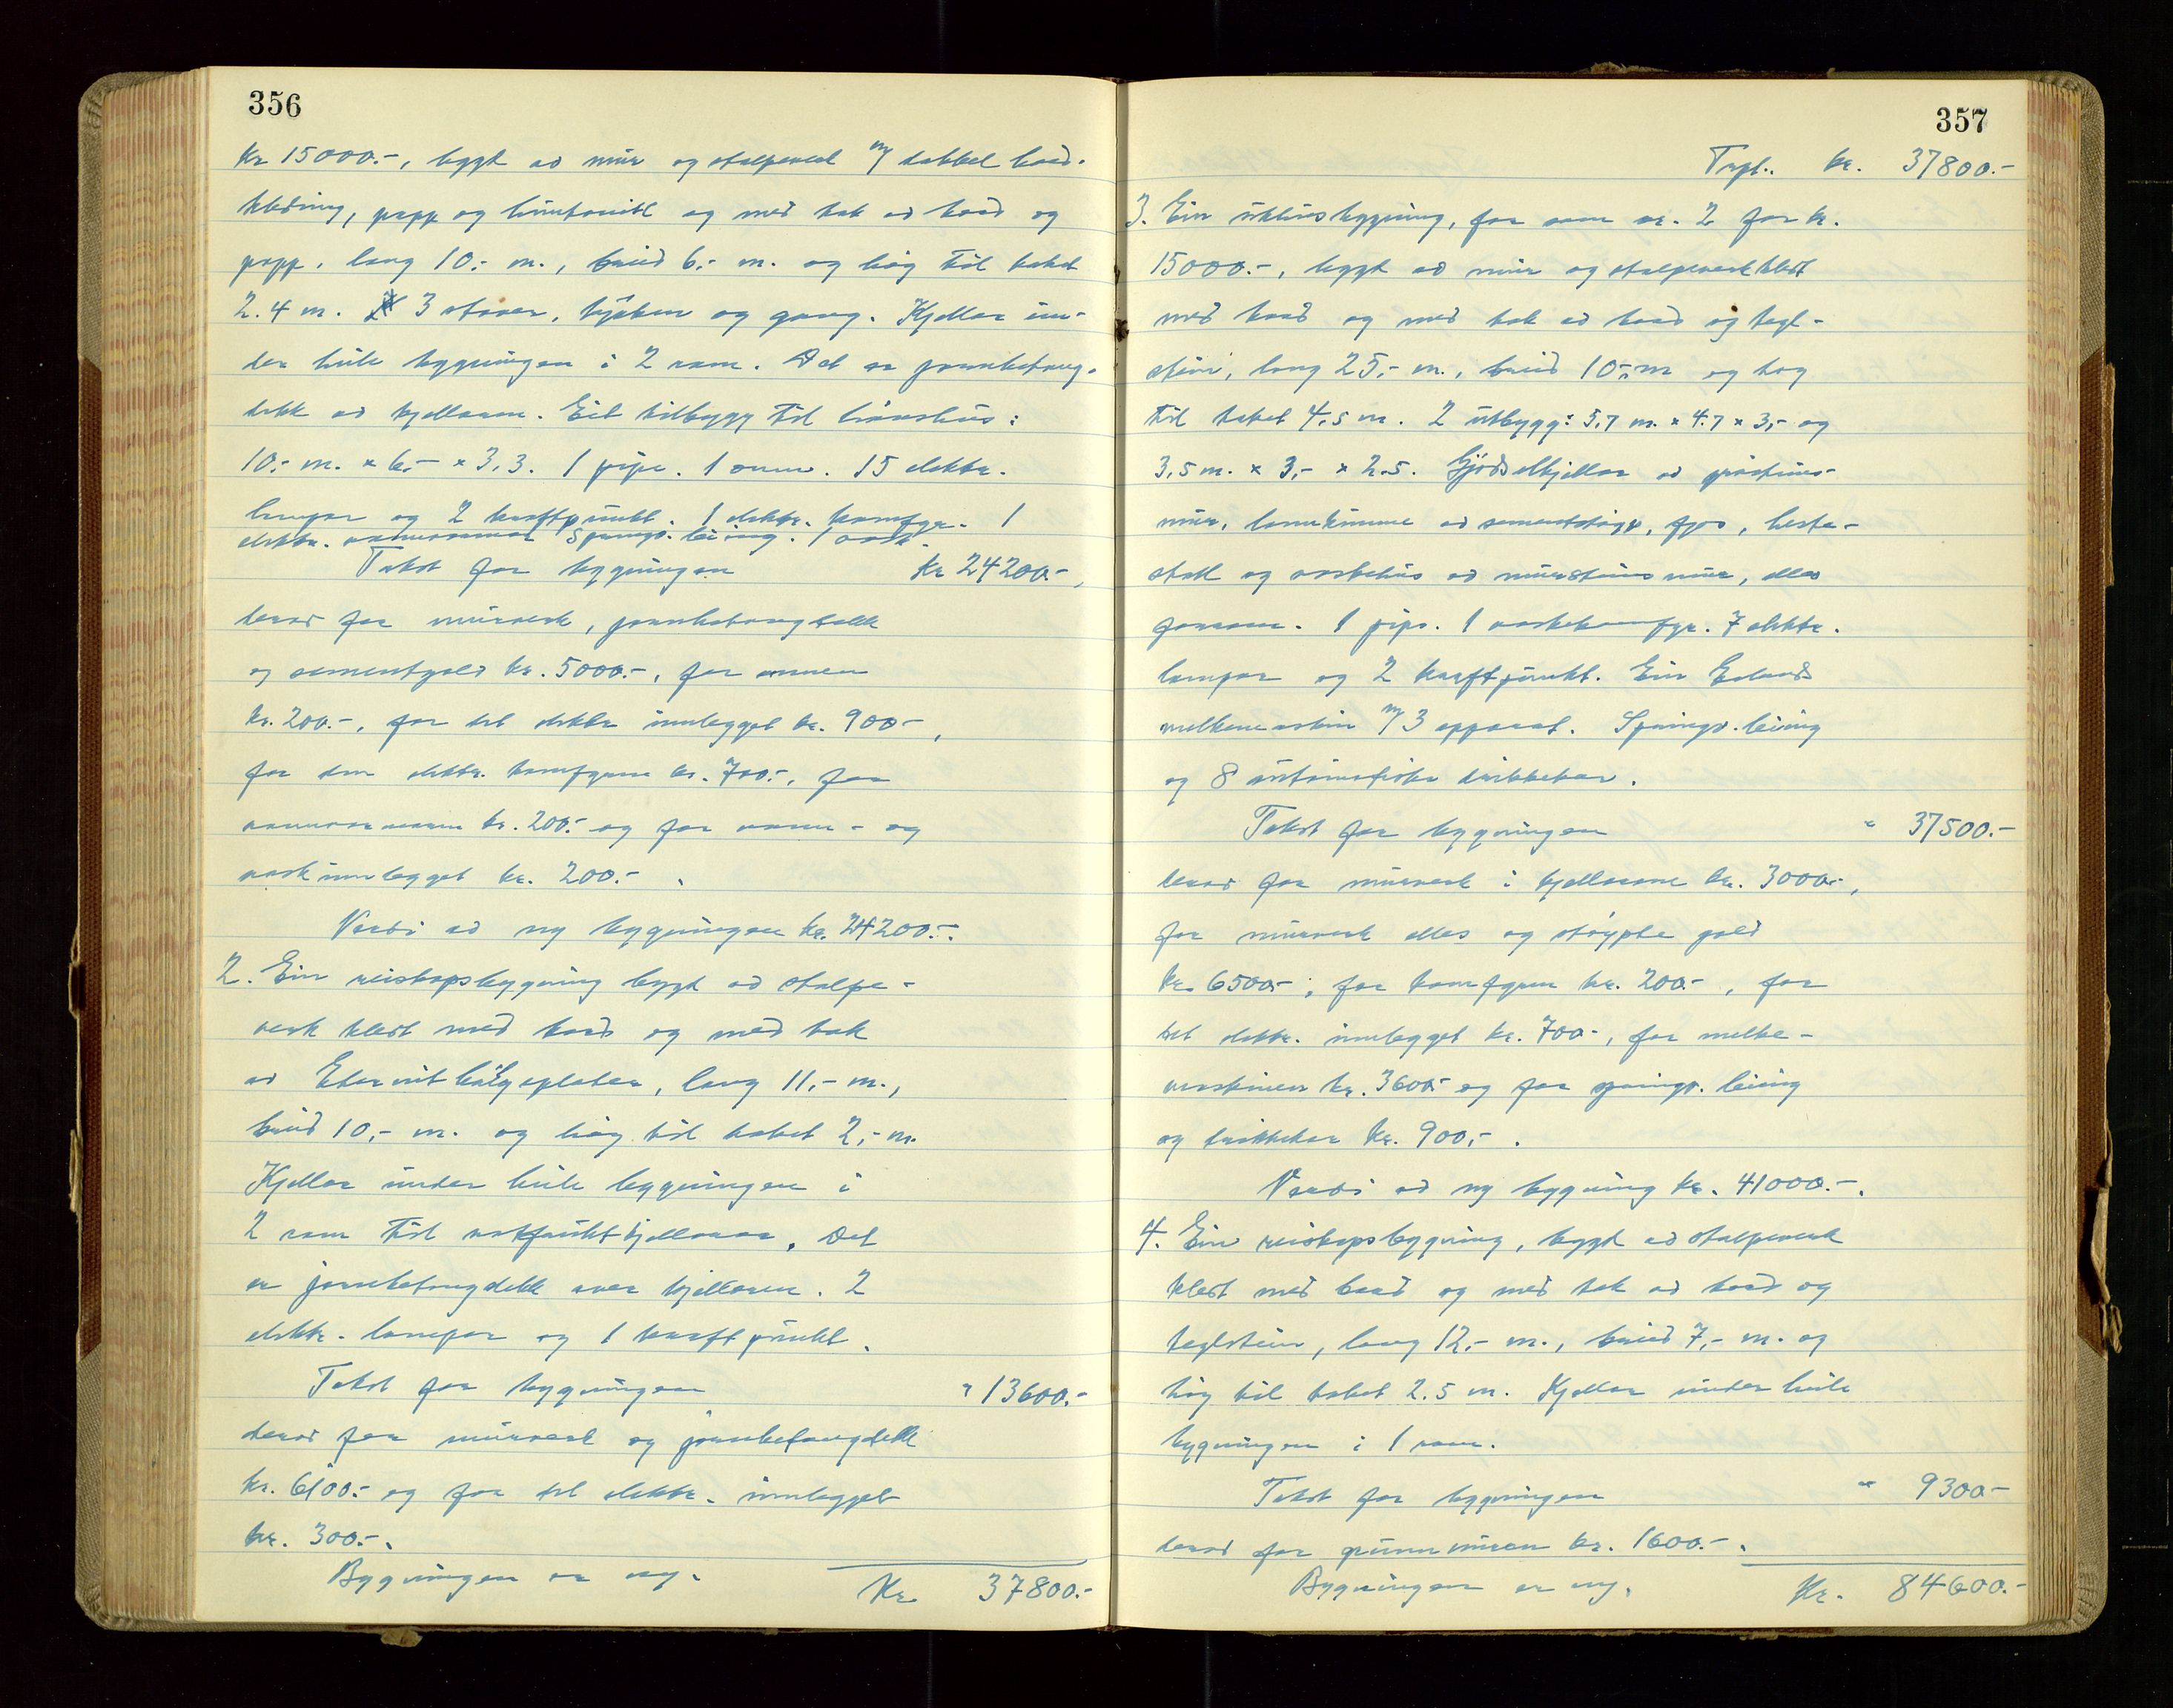 356
Kr 15000.-, bygt av mur og stolpeverk m/ dobbel bord-
kledning, papp og huntonitt og med tak av bord og
papp, lang 10.- m., breid 6,- m. og høg til taket
2.4 m. 3 stover, kjøken og gang. Kjellar un-
der heile bygningen i 2 rom. Det er jernbetong-
dekk av kjellaren. Eit tilbygg til
10,- m. x 6,- x 3,3. 1 pipe. 1 omn. 15 elektr.
lampor og 2 kraftpunkt. 1 elektr. komfyr. 1
elektr. Springv. leiing. 1 vask.
Takst for bygningen Kr 24200.-,
derav for murverk, jernbetongdekk
og sementgolv kr. 5000.-, for omnen
kr. 200.-, for det elektr innlegget kr. 900.-,
for den elektr. komfyren kr. 700.-, for
kr. 200.- og for vann- og
vaskinnlegget kr. 200.-.
Verdi av ny bygningen kr. 24200.-.
2. Ein reiskapsbygning bygt av stolpe-
verk kledt med bord og med tak
av Eternit bølgeplater, lang 11,- m.,
breid 10,- m. og høg til taket 2,- m.
Kjellar under heile bygningen i
2 rom til rotfruktkjellarar. Det
er jernbetongdekk over kjellaren. 2
elektr. lampor og 1 kraftpunkt.
Takst for bygningen " 13600.-
derav for murverk og jernbetongdekk
kr. 6100.- og for det elektr. innlegget
kr. 300.-.
Bygningen er ny.
Kr 37800.-
357
Trspt. kr. 37800.-
3. Ein uthusbygning, før som nr. 2 for kr.
15000.-, bygt av mur og stolpeverk kledt
med bord og med tak av bord og tegl-
stein, lang 25,- m., breid 10,- m og høg
til taket 4,5 m. 2 utbygg: 5,7 m. x 4.7 x 3,- og
3,5 m. x 3,- x 2.5. Gjødselkjellar av gråsteins-
mur, landkumme av sementstøyp, fjos, heste-
stall og vaskehus av mursteins mur, elles
forrom. 1 pipe. 1 vaskekomfyr. 7 elektr.
lampor og 2 kraftpunkt. Ein
melkemaskin m/ 3 apparat. Springv. leiing
og 8 automatiske drikkekar.
Takst for bygningen " 37500.-
derav for murverk i kjellarane kr. 3000.-,
for murverk elles og støypte golv
kr. 6500.-, for komfyren kr. 200.-, for
det elektr. innlegget kr. 700.-, for melke-
maskinen kr. 3600.- og for springv. leiing
og drikkekar kr. 900,-.
Verdi av ny bygning kr. 41000.-.
4. Ein reiskapsbygning, bygt av stolpeverk
kledt med bord og med tak av bord og
teglstein, lang 12,- m., breid 7,- m. og
høg til taket 2.5 m. Kjellar under heile
bygningen i 1 rom.
Takst for bygningen " 9300.-
derav for grunnmuren kr. 1600.-.
Bygningen er ny.
Kr. 84600.-